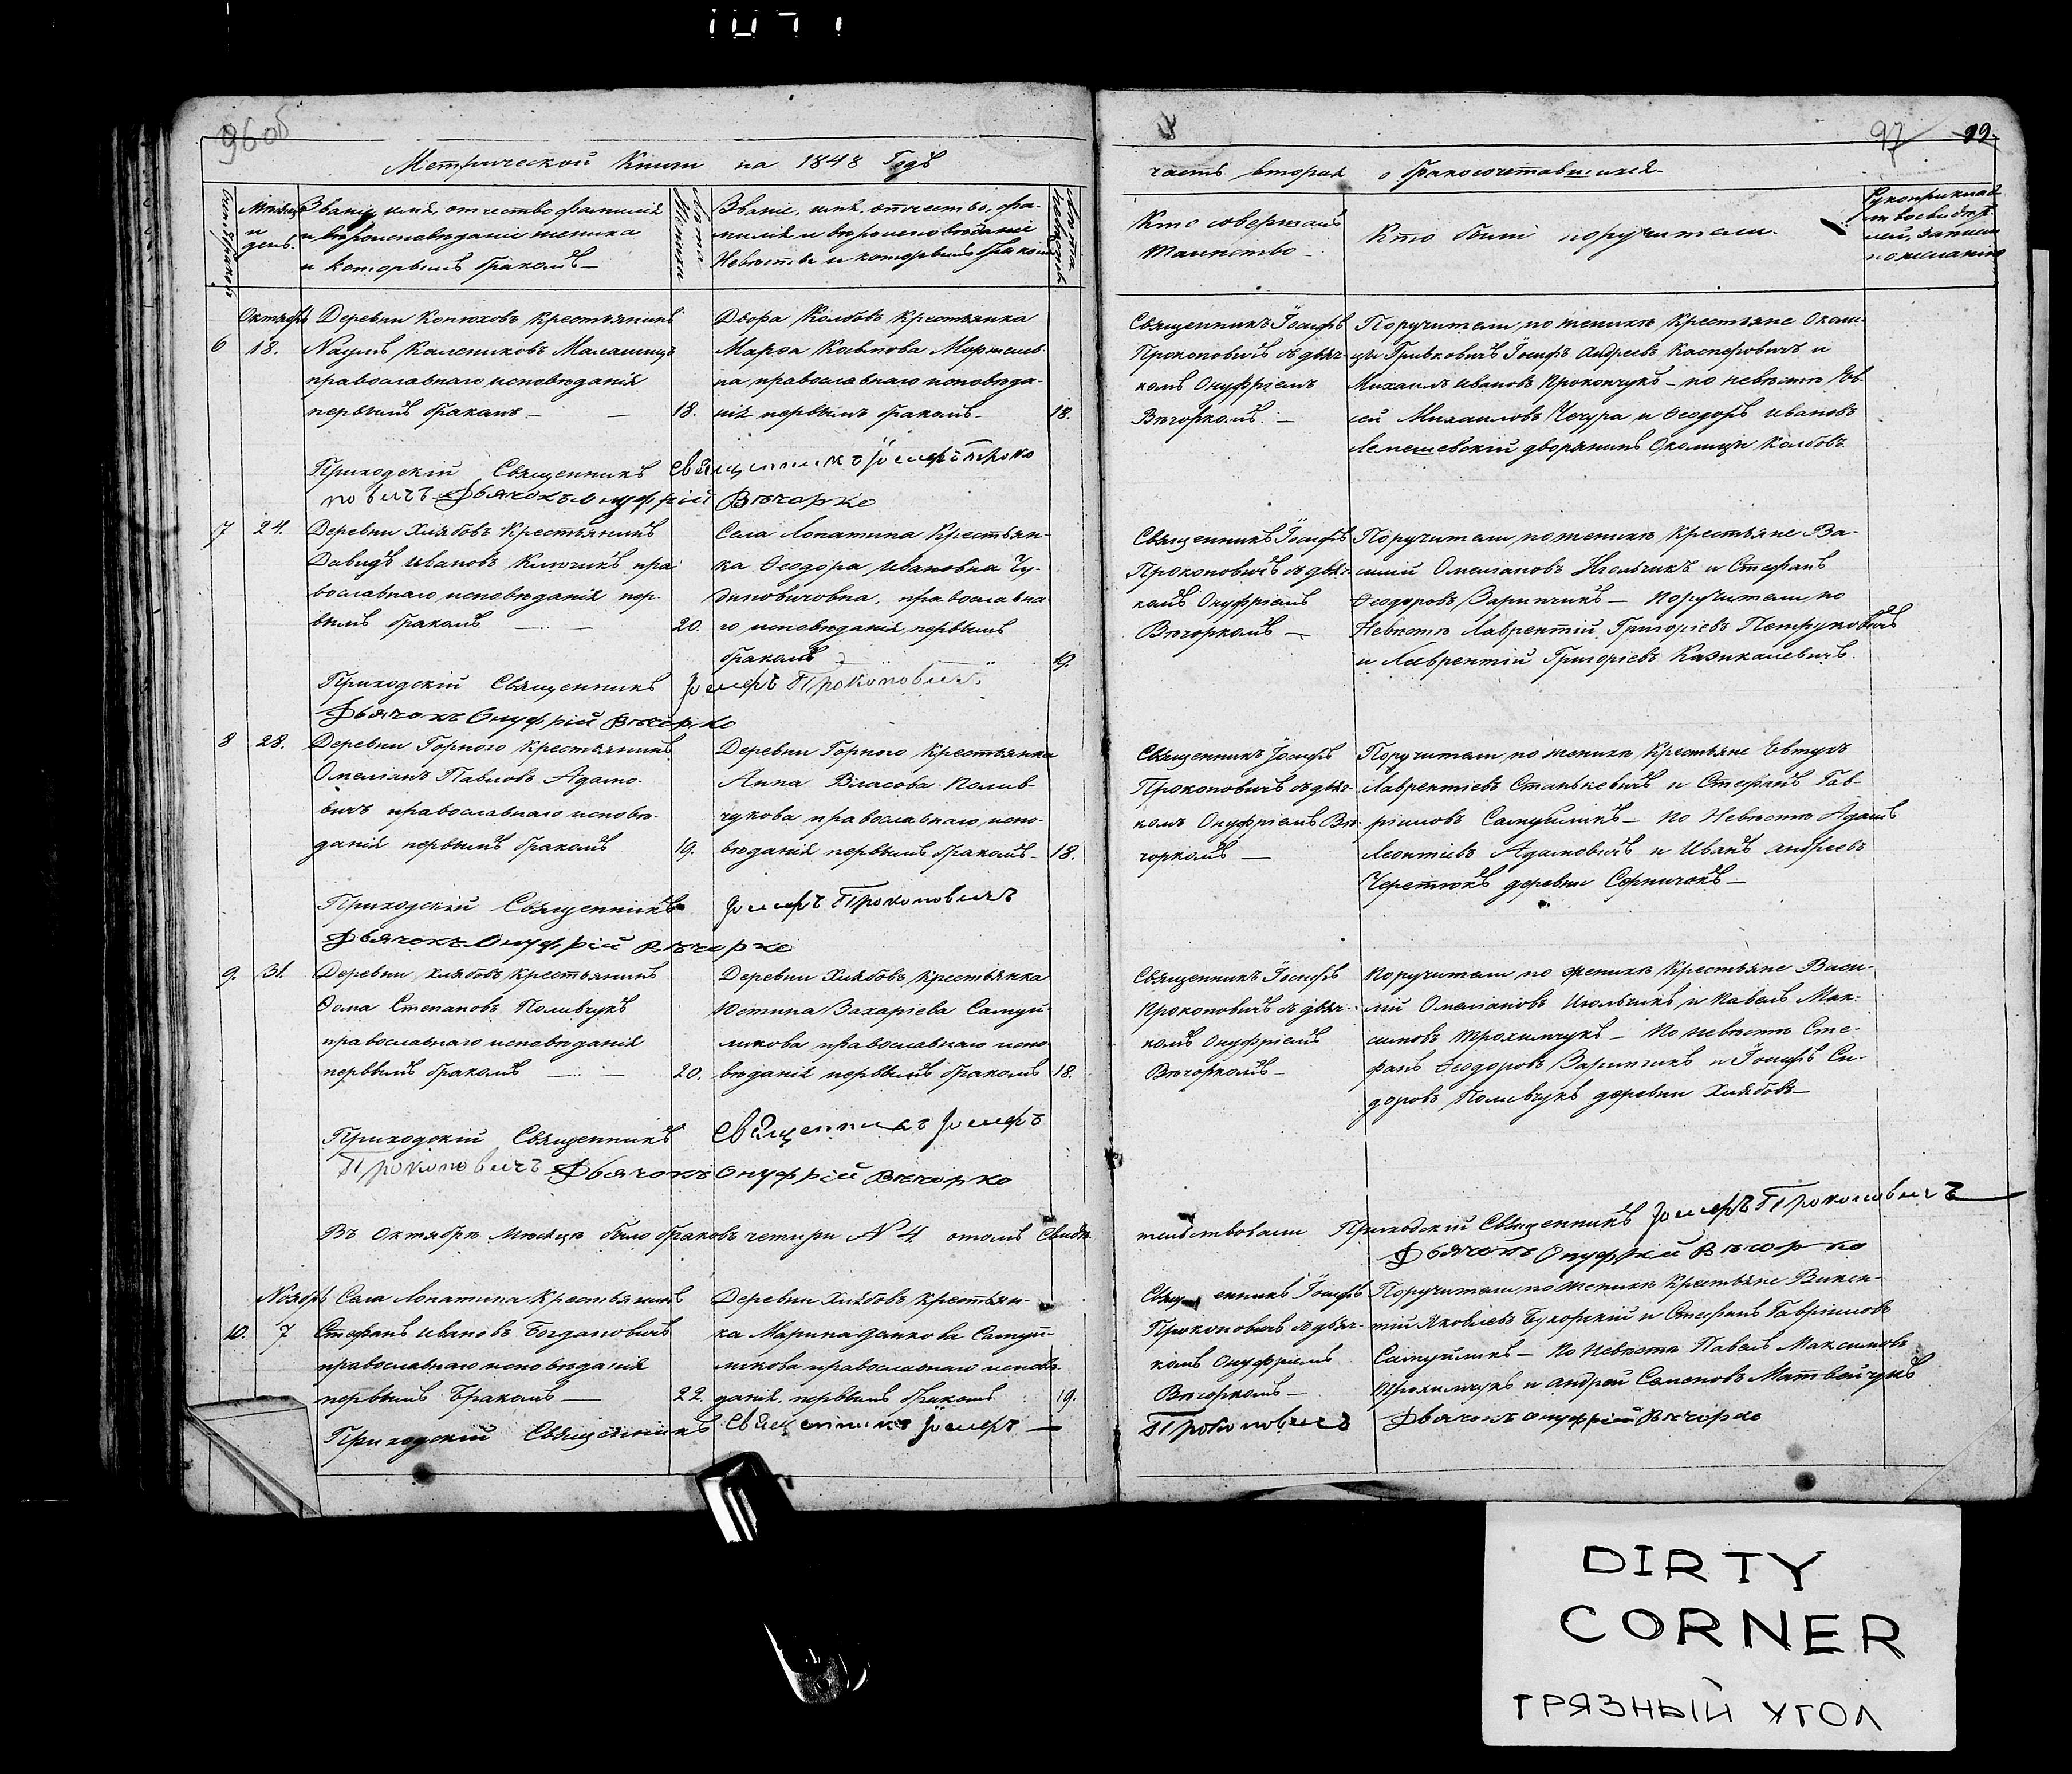 96об
Метрической Книги на 1848 Годъ
Мѣсяцъ и день
Званіе, имя, отчество фамилія
и вѣроисповѣданіе жениха
и которымъ бракомъ —
Лѣта Жениха
Званіе, имя, отчество, фа-
милія и вѣроисповѣданіе
Невѣсты и которымъ бракомъ
Лѣта Невѣсты
Октябрь Деревни Конюховъ Крестьянинъ
6 18. Наумъ Калениковъ Малашицъ
православнаго исповѣданія
первымъ бракомъ — — 18.
Двора Колбовъ Крестьянка
Марѳа
на православнаго исповѣда-
нія первымъ бракомъ — 18.
Приходскій Священникъ Священникъ Іосифъ Проко
повичъ Дьячокъ Онуфрій Вѣчорко
7 24. Деревни Хлябовъ Крестьянинъ
Давидъ Ивановъ Ключикъ пра
вославнаго исповѣданія пер-
вымъ бракомъ — — 20.
Села Лопатина Крестьян-
ка Ѳеодора Ивановна Чу-
диновичовна, православна-
го исповѣданія первымъ
бракомъ 19.
Приходскій Священникъ Іосифъ Прокоповичъ
Дьячокъ Онуфрій Вѣчорко
8 28. Деревни Горного Крестьянинъ
Омеліанъ Павловъ Адамо-
вичъ православнаго исповѣ-
данія первымъ бракомъ 19.
Деревни Горного Крестьянка
Анна Власова Полив-
чукова православнаго испо-
вѣданія первымъ бракомъ — 18.
Приходскій Священникъ Іосифъ Прокоповичъ
Дьячокъ Онуфрій Вѣчорко
9. 31. Деревни Хлябовъ Крестьянинъ
Ѳома Степановъ Поливчукъ
православнаго исповѣданія
первымъ бракомъ — — 20.
Деревни Хлябовъ Крестьянка
Юстина Захаріева Самуй-
ликова православнаго испо
вѣданія первымъ бракомъ 18.
Приходскій Священникъ Священникъ Іосифъ
Прокоповичъ Дьячокъ Онуфрій Вѣчорко
Въ Октябрѣ Мѣсяцѣ было браковъ четыри N 4. отомъ Свидѣ
Ноябрь Села Лопатина Крестьянинъ
10. 7 Стефанъ Ивановъ Богдановичъ
православнаго исповѣданія
первымъ Бракомъ — 22.
Деревни Хлябовъ Крестьян-
ка Марина Данкова Самуй-
ликова православнаго исповѣ-
данія, первымъ бракомъ 19.
Приходскій Священникъ Священникъ Іосифъ —
97 99.
часть вторая о бракосочетавшихся.
Кто совершалъ
таинство —
Кто были поручители.
Рукоприклад
ство свидѣте
лей, записи
по желанію
Священникъ Іосифъ
Прокоповичъ съ дьяч-
комъ Онуфріемъ
Вѣчоркомъ. —
Поручители по женихѣ Крестьяне Околи-
цы Гривковичъ Іосифъ Андреевъ Касперовичъ и
Михаилъ Ивановъ Прокопчукъ — по невѣстѣ Ев-
сей Михаиловъ Чечура и Ѳеодоръ Ивановъ
Лемешевскій дворянинъ Околицы Колбовъ
Священникъ Іосифъ
Прокоповичъ съ дьяч-
комъ Онуфріемъ
Вѣчоркомъ —
Поручители по женихѣ Крестьяне Ва-
силій Омеліановъ и Стефанъ
Ѳеодоровъ Заринчикъ — Поручители по
Невѣстѣ Лаврентій Григоріевъ Петруковичъ
и Лаврентій Григоріевъ Казикалевичъ.
Священникъ Іосифъ
Прокоповичъ съ дьяч-
комъ Онуфріемъ Вѣ-
чоркомъ —
Поручители по женихѣ Крестьяне Евтухъ
Лаврентіевъ Станкевичъ и Стефанъ Гав-
ріиловъ Самуйликъ — по Невѣстѣ Адамъ
Леонтіевъ Адамовичъ и Иванъ Андреевъ
Черетюкъ деревни Серничокъ —
Священникъ Іосифъ
Прокоповичъ съ дьяч-
комъ Онуфріемъ
Вѣчоркомъ —
Поручители по женихѣ Крестьяне Васи-
лій Омеліановъ и Павелъ Мак-
симовъ Трохимчукъ — по невѣстѣ Сте-
фанъ Ѳеодоровъ Заринчикъ и Іосифъ Си-
доровъ Поливчукъ деревни Хлябовъ —
тельствовали Приходскій Священникъ Іосифъ Прокоповичъ
Дьячокъ Онуфрій Вѣчорко
Священникъ Іосифъ
Прокоповичъ съ дьяч-
комъ Онуфріемъ
Вѣчоркомъ —
Поручители по женихѣ Крестьяне Викен-
тій Яковлевъ Букорскій и Стефанъ Гавріиловъ
Самуйликъ — по Невѣстѣ Павелъ Максимовъ
Трохимчукъ и Андрей Семеновъ Матвейчукъ
Прокоповичъ Дьячокъ Онуфрій Вѣчорко
DIRTY
CORNER
ГРЯЗНЫЙ УГОЛ